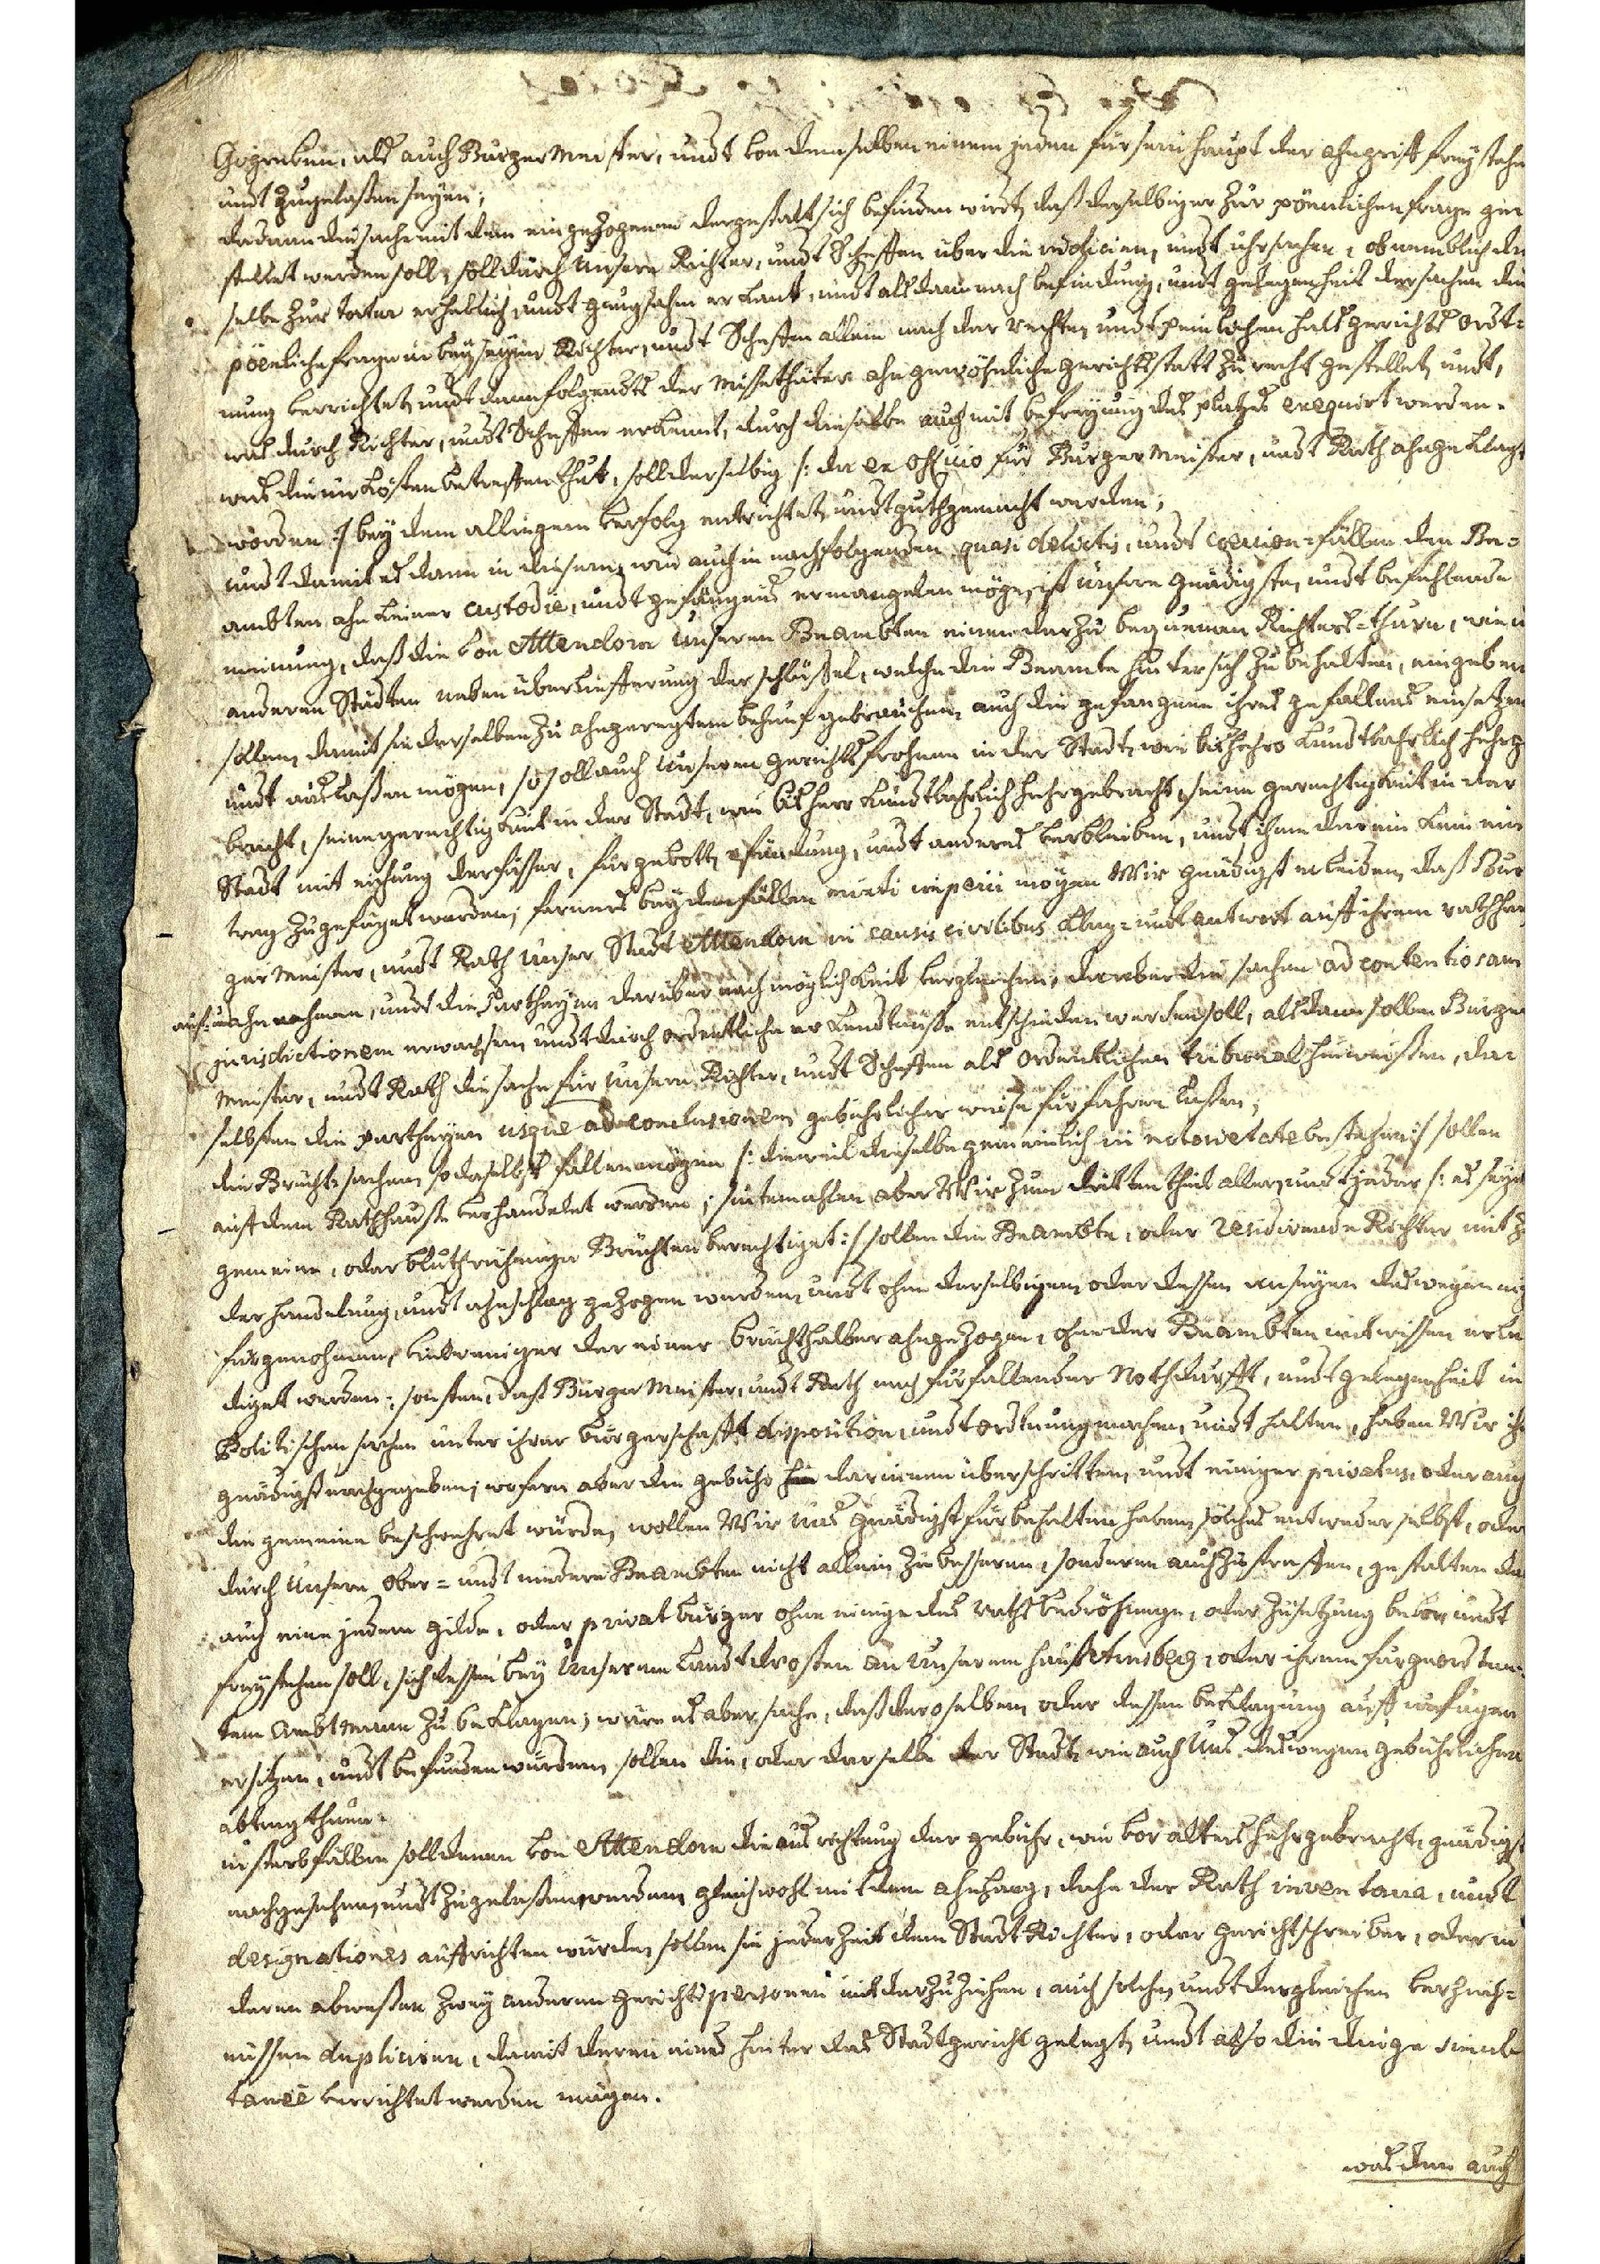 Gogreben, als auch Burger Meister, undt von demselben einem jeden für sein haupt der ahngriff frey stehe
undt zugelaßen seyen;
da dann die sach mit dem eingezogenen dergestalt sich befinden wirdt, daß derselbiger zur pöenlichen frage ge
stellet werden soll, soll durch Unsere Richter, undt Scheffen über die indicien, undt uhrsachen, ob nemblich die
selbe zur tortur erheblich, undt gnugsahm erkant, undt alsdann nach befindung, undt gelegenheit der sachen die
pöenliche frage in beyseyn Richter, undt Scheffen allein nach der rechten undt peinlichen halsgerichts ordt-
nung verrichtet, undt dann folgendts der Missethäter ahn gewöhnliche gerichtsstatt zu recht gestellet, undt,
was durch Richter, undt Scheffen erkennt, durch dieselbe auch mit befreyung des platzes exequirt werden.
was die unkösten betreffen thut, soll derselbig /: da ex officio für Burger Meister, und Rath ahngeklagt
worden :/ bey dem allingem verfolg entrichtet, undt gutgemacht werden;
undt damit es dann in diesem, wie auch in nachfolgenden quasi delictis, undt coercion-fällen den Be-
ambten ahn keiner custodie, undt gefängnus ermangelen möge, ist unsere gnädigste, undt befehlende
meinung, daß die von Attendorn Unseren Beambten einen darzu bequemen Richters-thurn, wie in
anderen Städten neben überlieferung der schlüßel, welche die Beamte hinter sich zu behalten, eingeben
sollen, damit sie derselben zu ahngeregtem behuf gebrauchen, auch die gefangene ihres gefallens einsetzen
undt auslaßen mögen, so soll auch Unserem gerichtsfrohnen in der Stadt, wie bis hierhero kundtbahrlich hehrge
bracht, seine gerechtigkeit in der Stadt, wie bis hero kundtbahrlich hehrgebracht, seine gerechtigkeit in der
Stadt mit eichung der fäßer, fürgebott, pfändung, undt anderes verbleiben, undt ihme darin kein ein
trag zugefüget werden; ferners bey den fällen mixti imperii mögen Wir gnädigst erleiden, daß Bur
ger Meister, undt Rath Unser Stadt Attendorn in causis civilibus klag- undt antwort auff ihrem rathhaus
auf- undt ahnnehmen, undt die Partheyen darüber nach möglichkeit vergleichen, da aber die sachen ad contentiosam
jurisdictionem erwachsen undt durch ordentliche erkendtnüße entschieden werden soll, alsdann sollen Burger
Meister, undt Rath die sache für Unsern Richter, undt Scheffen als ordentlichen tribunal hinweisen, da
selbsten die partheyen usque ad conclusionem gebührlicher weise fürfahren laßen;
die Brücht sachen, so daselbst fallen mögen /: dieweil dieselbe gemeinlich in notorietate bestehen :/ sollen
auf dem Rathhauße verhandelet werden; sintemahlen aber Wir zum dritten theil aller, undt jeder /: es seyen
gemeine, oder bluthrühriger Brüchten berechtiget :/ sollen die Beambte, oder residirende Richter mit zu
der handelung, undt ahnschlag gezogen werden, undt ohne derselbigen oder dessen anseyen deswegen nichts
fürgenohmen, viel weniger der einer brücht halber ahngezogen, ohne der Beambten mitwissen erle
diget werden; sonsten, daß Burger Meister, undt Rath nach fürfallender Nothdurfft, undt gelegenheit in
Politischen sachen unter ihrer Bürgerschafft disposition, undt ordtnung machen, undt halten, haben Wir ihnen
gnädigst nachgegeben; wofern aber die gebühr darinnen überschritten, undt einiger privatus, oder auch
die gemeine beschwehret würde, wollen Wir Uns gnädigst fürbehalten haben, solches entweder selbst, oder
durch Unsere ober- undt niedere Beambten nicht allein zu besseren, sonderen auch zu straffen, gestalten dan
auch einen jedem gilde, oder privat bürger ohne einige des raths bedröhunge, oder zusetzung bevor undt
freystehen soll, sich dessen bey Unserem Landtdrosten in Unserem hauß Arnsberg, oder ihrem fürgeordtne-
tem Ambtmann zu beklagen; wäre es aber sache, daß deroselben, oder dessen beklagung auff unfugen
ersitzen, undt befunden würden, sollen die, oder derselbe der Stadt, wie auch Uns deswegen gebührlichen
abtrag thuen.
in sterbfällen soll denen von Attendorn die ausrichtung der gebühr, wie vor alters hehrgebracht, gnädigst
nachgesehen, undt zugelaßen werden, gleichwohl mit dem ahnhang, daße der Rath inventaria, undt
designationes auffrichten würden, sollen sie jederzeit dem Stadt Richter, oder gerichtschreiber, oder in
deren abweßen zwey anderen gerichtspersonen mit darzu ziehen, auch solche, undt dergleichen verzeich-
nüssen dupliciren, damit deren eines hinter das Stadtgericht gelegt, undt also die dinge simul-
taneè verrichtet werden mögen.
was dan auch